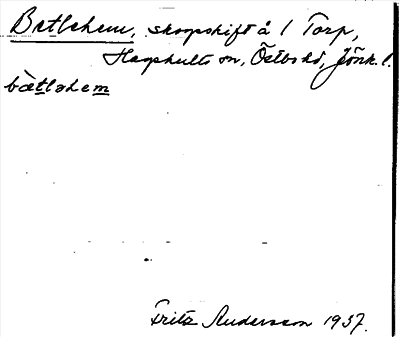 Betlehem, skogsskift å 1 Torp,
Hagshults sn, Östbo hd, Jönk. l.
bètləhem
Fritz Andersson 1937.